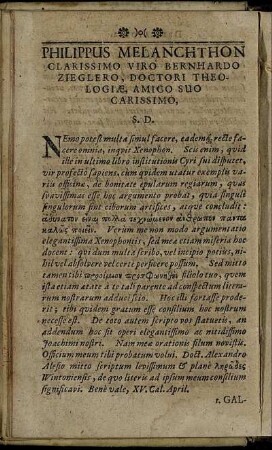 PHILIPPUS MELANCHTHON
CLARISSIMO VIRO BERNHARDO
ZIEGLERO, DOCTORI THEO-
LOGIÆ, AMICO SUO
CARISSIMO,
S. D.
NEmo potest multa simul facere, eademq; recte fa-
cere omnia, inquit Xenophon. Scis enim, quid
ille in ultimo libro institutionis Cyri sui disputet,
vir profecto sapiens, cum quidem utatur exemplis va-
riis officina, de bonitate epularum regiarum, quas
suavissimas esse hoc argumento probat, quia singuli
singulorum sint ciborum artifices, atque concludit:
ἀδύνατον πολλὰ τεχνώμενον ἄνθρωπον πάντα
καλῶς ποιεῖν. Verum me non modo argumentatio
elegantissima Xenophontis, sed mea etiam miseria hoc
docent: qui dum multa scribo, vel incipio potius, ni-
hil vel absolvere vel certe perficere possum. Sed mitto
tamen tibi filiolo tuo, quem
ista etiam ætate à te tali parente ad conspectum litera-
rum nostrarum adduci scio. Hoc illi fortasse prode-
rit; tibi quidem gratum esse consilium hoc nostrum
necesse est. De toto autem scripto vos statuetis, an
addendum hoc sit operi elegantissimo ac nitidissimo
Joachimi nostri. Nam meæ orationis filum novistis.
Officium meum tibi probatum volui. Doct. Alexandro
Alesio mitto scriptum levissimum & planè ληρῶδες
Wintoniensis, de quo literis ad ipsum meum consilium
significavi. Benè vale, XV. Cal. April.
1. GAL-